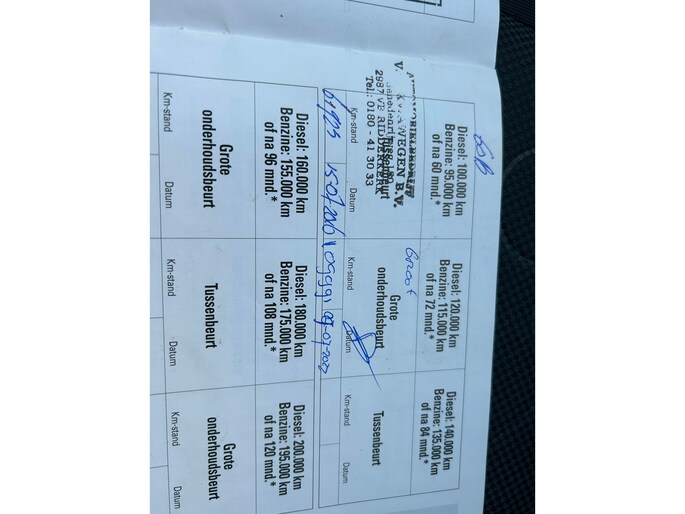 Diesel: 100.000 km
Benzine: 95.000 km
of na 60 mnd.*
KEMPEN B.V.
2987 VB RIDDERKERK
Tel.: 0180 - 41 30 33
Km-stand
Datum
15-07-2016
Diesel: 120.000 km
Benzine: 115.000 km
of na 72 mnd.*
Groot
Grote
onderhoudsbeurt
Km-stand
Datum
Diesel: 140.000 km
Benzine: 135.000 km
of na 84 mnd.*
Tussenbeurt
Km-stand
Datum
Diesel: 160.000 km
Benzine: 155.000 km
of na 96 mnd.*
Grote
onderhoudsbeurt
Km-stand
Datum
Diesel: 180.000 km
Benzine: 175.000 km
of na 108 mnd.*
Tussenbeurt
Km-stand
Datum
Diesel: 200.000 km
Benzine: 195.000 km
of na 120 mnd.*
Grote
onderhoudsbeurt
Km-stand
Datum